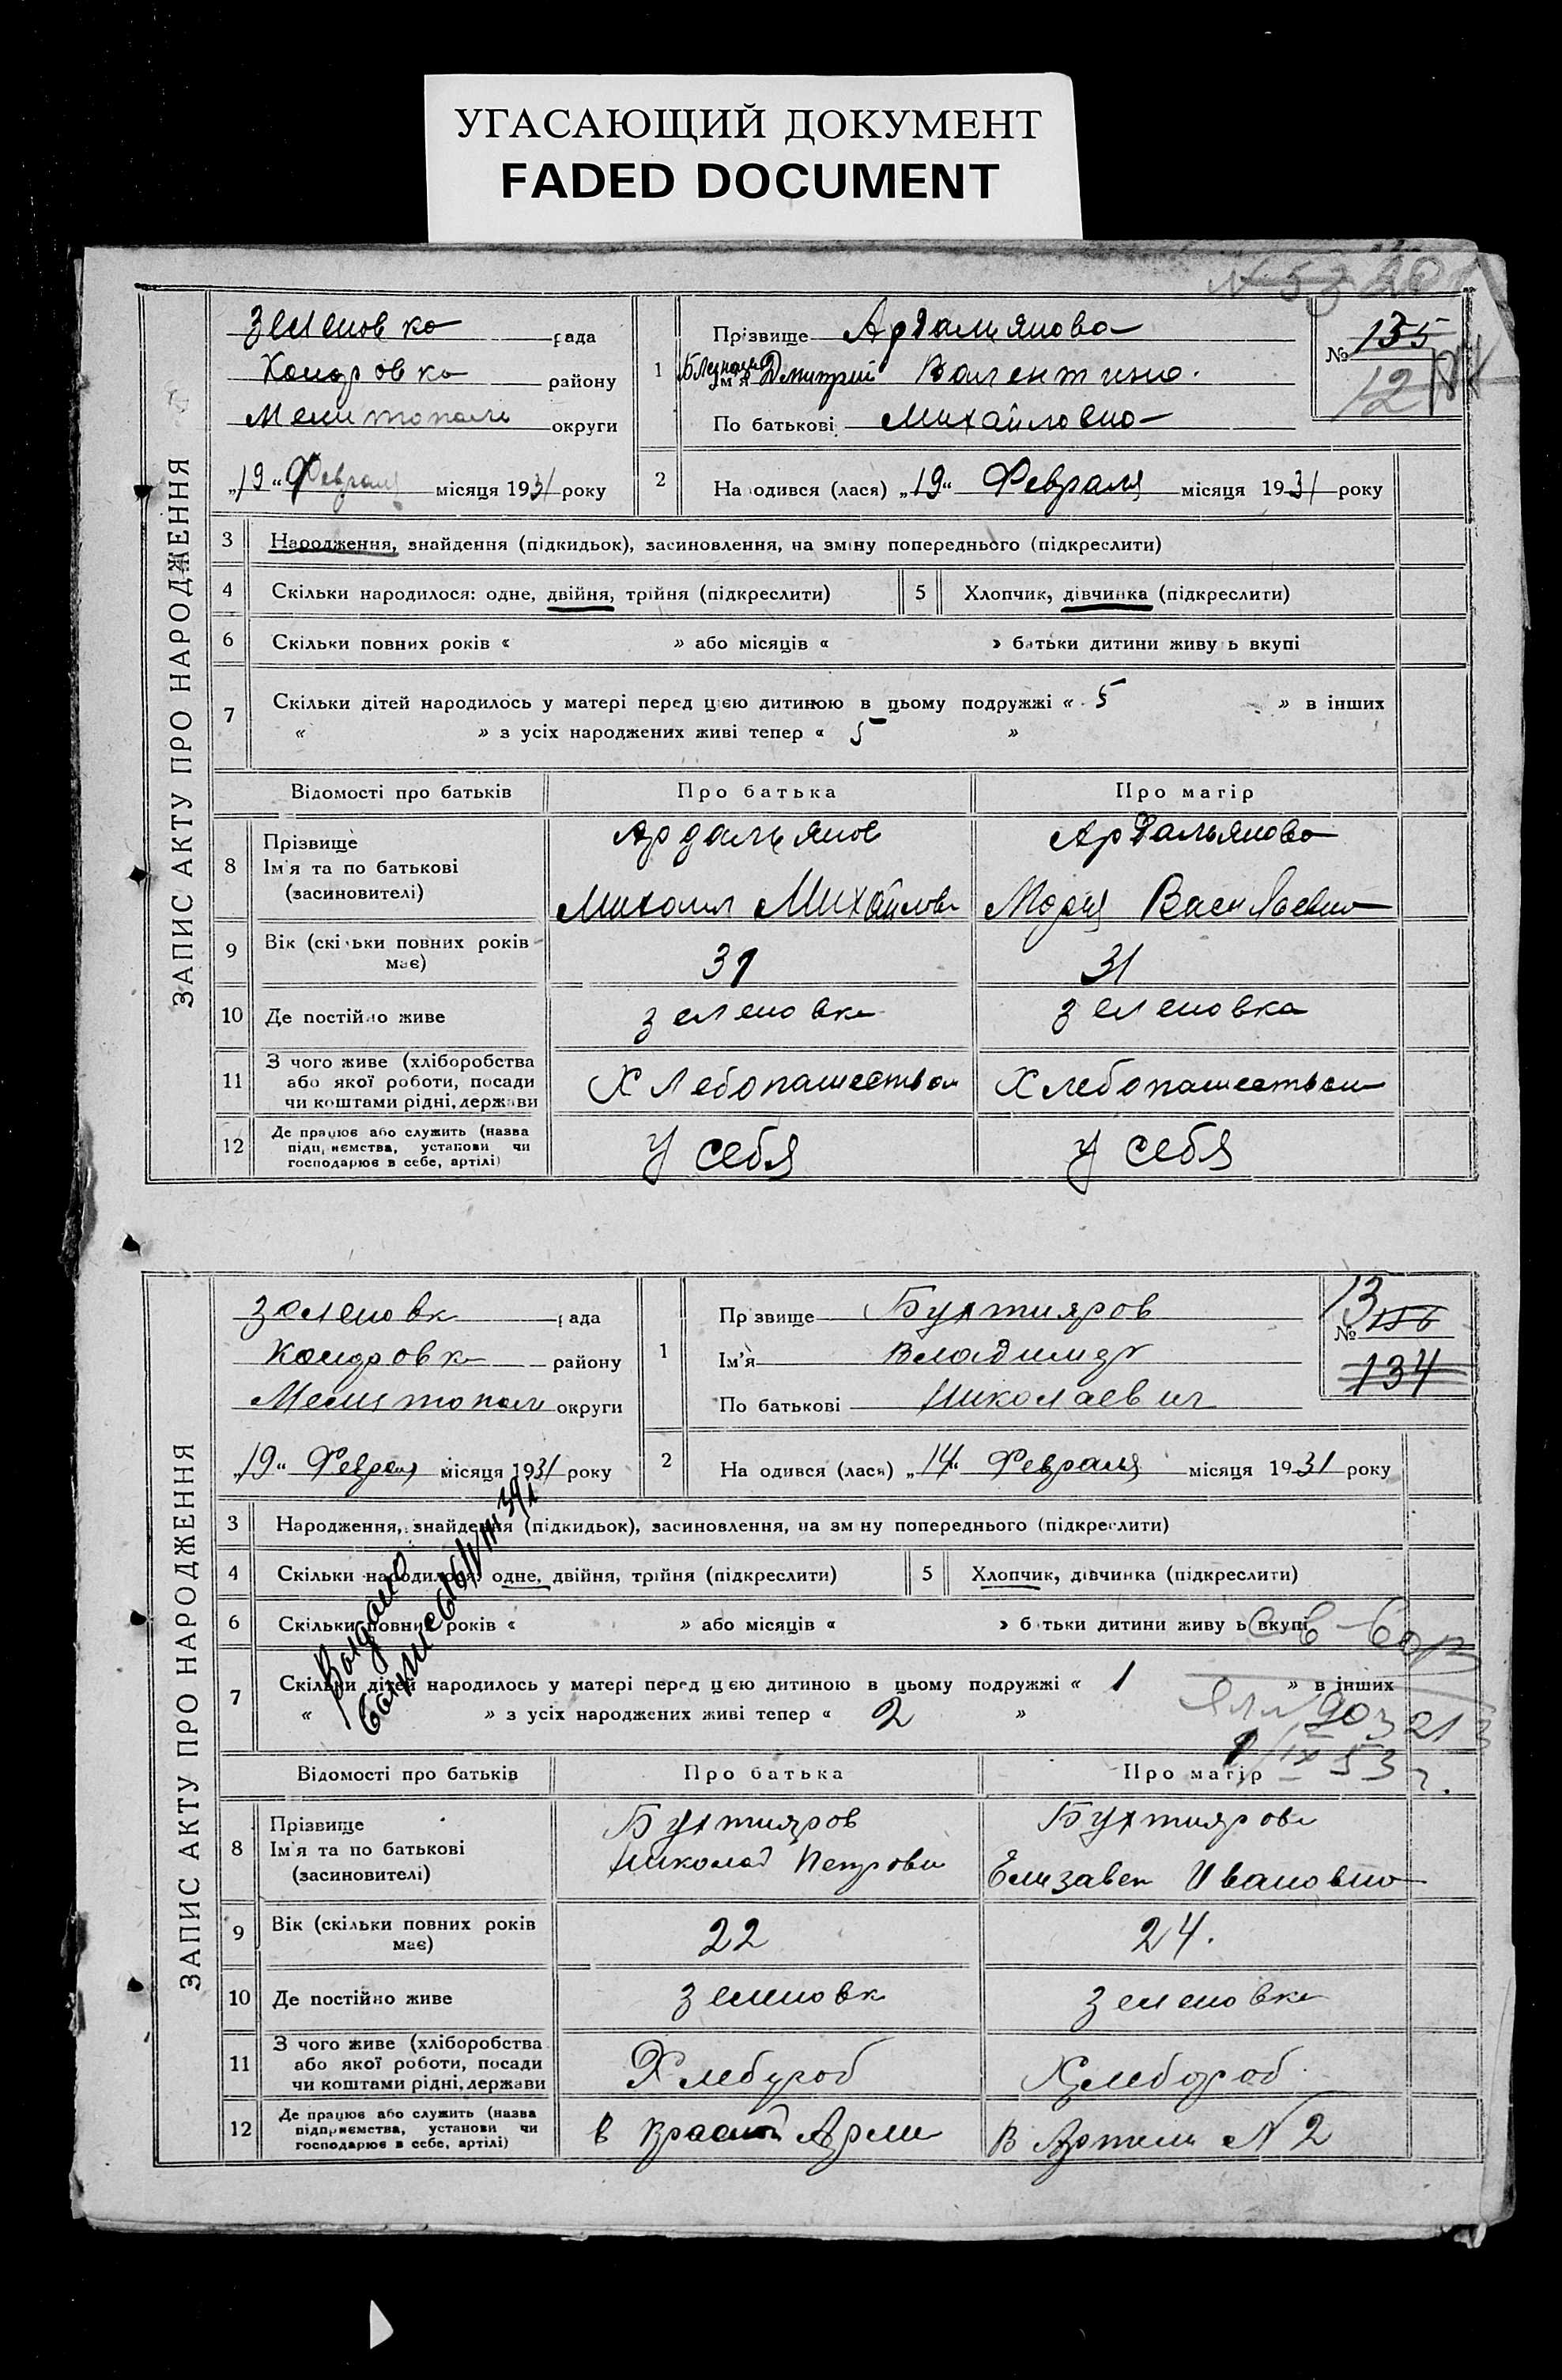 УГАСАЮЩИЙ ДОКУМЕНТ
FADED DOCUMENT
ЗАПИС АКТУ ПРО НАРОДЖЕННЯ
Зеленовко рада
район­у
Мелитополь округи
„19“ Февраля місяця 1931 року
1 Прізвище Ардальянова
№ 135
12
Ім'я Близнецы Дмитрий Валентина.
По батькові Михайловна
2 На одився (лася) „19“ Февраля місяця 1931 року
3 Народження, знайдення (підкидьок), засиновлення, на зміну попереднього (підкреслити)
4 Скільки народилося: одне, двійня, трійня (підкреслити) 5 Хлопчик, дівчинка (підкреслити)
6 Скільки повних років « » або місяців « » батьки дитини живу ь вкупі
7 Скільки дітей народилось у матері перед цією дитиною в цьому подружжі « 5 » в інших
« » з усіх народжених живі тепер « 5 »
Відомості про батьків Про батька Про матір
8 Прізвище Ардальянов Ардальянова
Ім'я та по батькові
(засиновителі) Михаил Михайлов Мария Васильевна
9 Вік (скільки повних років має) 31 31
10 Де постійно живе зеленовка зеленовка
11 З чого живе (хліборобства
або якої роботи, посади Хлебопашеством Хлебопашеством
чи коштами рідні, держави
12 Де працює або служить (назва
підприємства, установи чи У себя У себя
господарює в себе, артілі)
ЗАПИС АКТУ ПРО НАРОДЖЕННЯ
зеленовк рада
району
Мелитополь округи
„19“ Февраля місяця 1931 року
1 Пр звище Бухтияров
13
№ 136
134
Ім'я Владимир
По батькові Николаевич
2 На одився (лася) „14“ Февраля місяця 1931 року
3 Народження, знайдення (підкидьок), засиновлення, на зм ну попереднього (підкреслити)
4 Скільки народилося: одне, двійня, трійня (підкреслити) 5 Хлопчик, дівчинка (підкреслити)
6 Скільки повних років « » або місяців « » б тьки дитини живу ь вкупі
7 Скільки дітей народилось у матері перед цією дитиною в цьому подружжі « 1 » в інших
« » з усіх народжених живі тепер « 2 »
Відомості про батьків Про батька Про матір
8 Прізвище Бухтияров Бухтиярова
Ім'я та по батькові Николай Петрови Елизавет Ивановна
(засиновителі)
9 Вік (скільки повних років має) 22 24.
10 Де постійно живе зеленовк зеленовка
11 З чого живе (хліборобства
або якої роботи, посади Хлебороб Хлебороб
чи коштами рідні, держави
12 Де працює або служить (назва
підприємства, установи чи в Красной Арми В Артели N 2
господарює в себе, артілі)